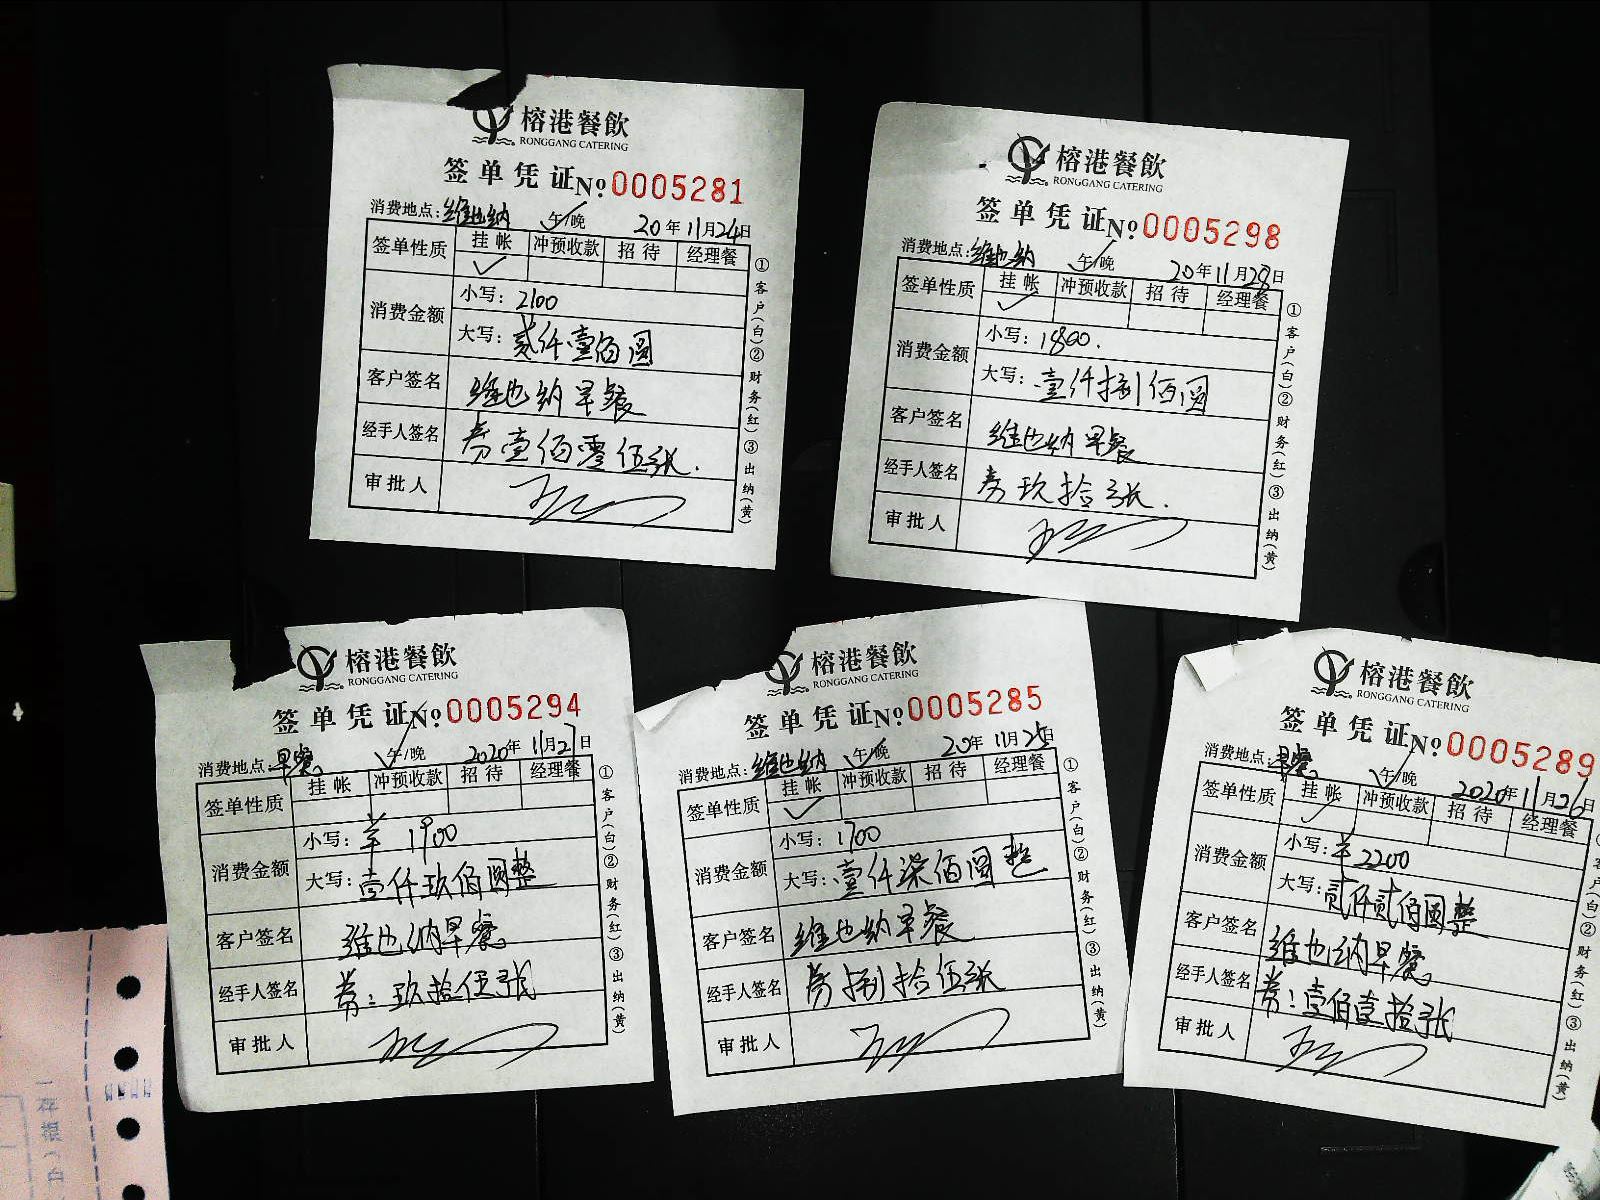 榕港餐飲
RONGGANG CATERING
签单凭证 No 0005281
消费地点:维也纳 午/晚 20年11月24日
签单性质 挂帐 冲预收款 招待 经理餐
✓
消费金额 小写:2100
大写:贰仟壹佰圆
客户签名 维也纳早餐
经手人签名 券壹佰零伍张.
审批人
①客户(白)②财务(红)③出纳(黄)
榕港餐飲
RONGGANG CATERING
签单凭证 No 0005298
消费地点:维也纳 午/晚 20年11月28日
签单性质 挂帐 冲预收款 招待 经理餐
✓
消费金额 小写:1800.
大写:壹仟捌佰圆
客户签名 维也纳早餐
经手人签名 券玖拾张.
审批人
①客户(白)②财务(红)③出纳(黄)
榕港餐飲
RONGGANG CATERING
签单凭证 No 0005294
消费地点:早餐 午/晚 2020年11月27日
签单性质 挂帐 冲预收款 招待 经理餐
消费金额 小写:羊 1900
大写:壹仟玖佰圆整
客户签名 维也纳早餐
经手人签名 券:玖拾伍张
审批人
①客户(白)②财务(红)③出纳(黄)
榕港餐飲
RONGGANG CATERING
签单凭证 No 0005285
消费地点:维也纳 午/晚 20年11月25日
签单性质 挂帐 冲预收款 招待 经理餐
✓
消费金额 小写:1700
大写:壹仟柒佰圆整
客户签名 维也纳早餐
经手人签名 券捌拾伍张
审批人
①客户(白)②财务(红)③出纳(黄)
榕港餐飲
RONGGANG CATERING
签单凭证 No 0005289
消费地点:早餐 午/晚 2020年11月26日
签单性质 挂帐 冲预收款 招待 经理餐
✓
消费金额 小写:羊2200
大写:贰仟贰佰圆整
客户签名 维也纳早餐
经手人签名 券:壹佰壹拾张
审批人
①客户(白)②财务(红)③出纳(黄)